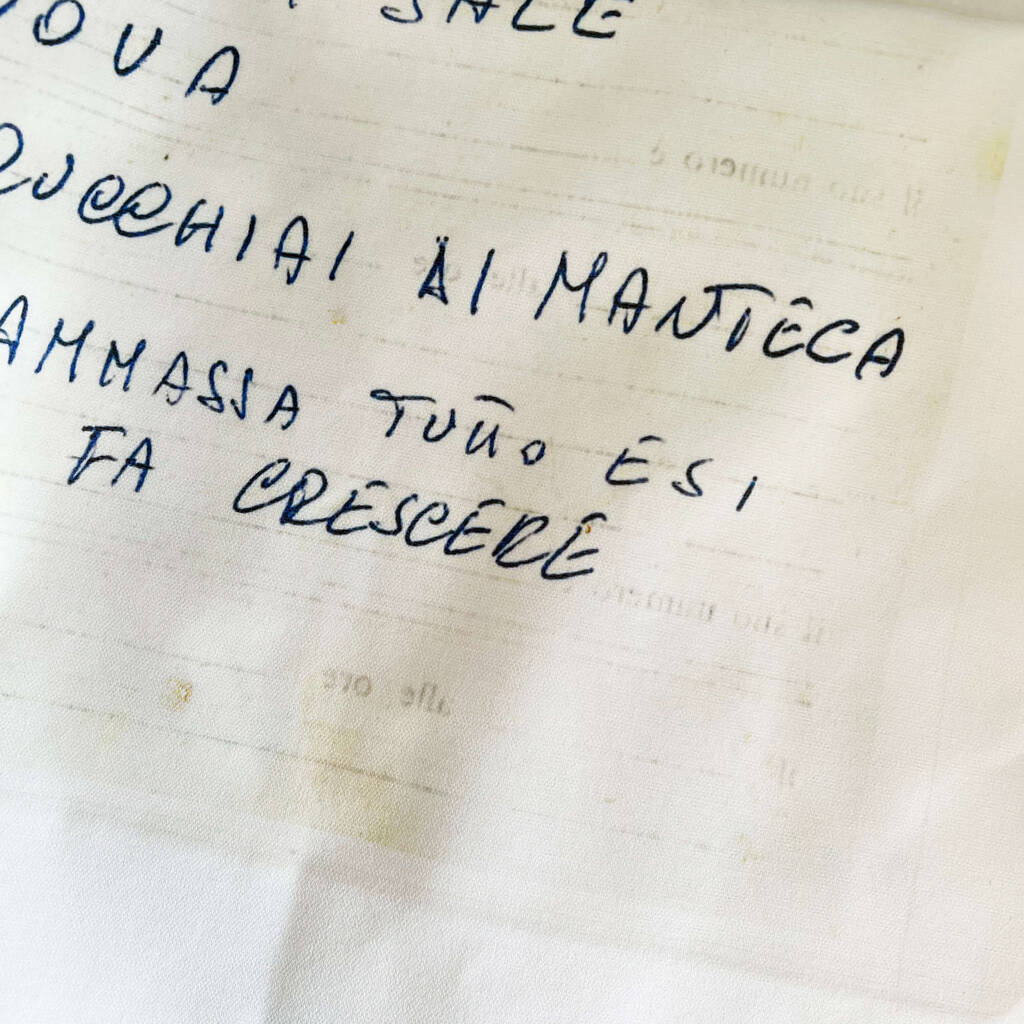 SALE
UOVA
CUCCHIAI DI MANTECA
AMMASSA TUTTO E SI
FA CRESCERE
il suo numero è
alle ore
il suo numero è
alle ore